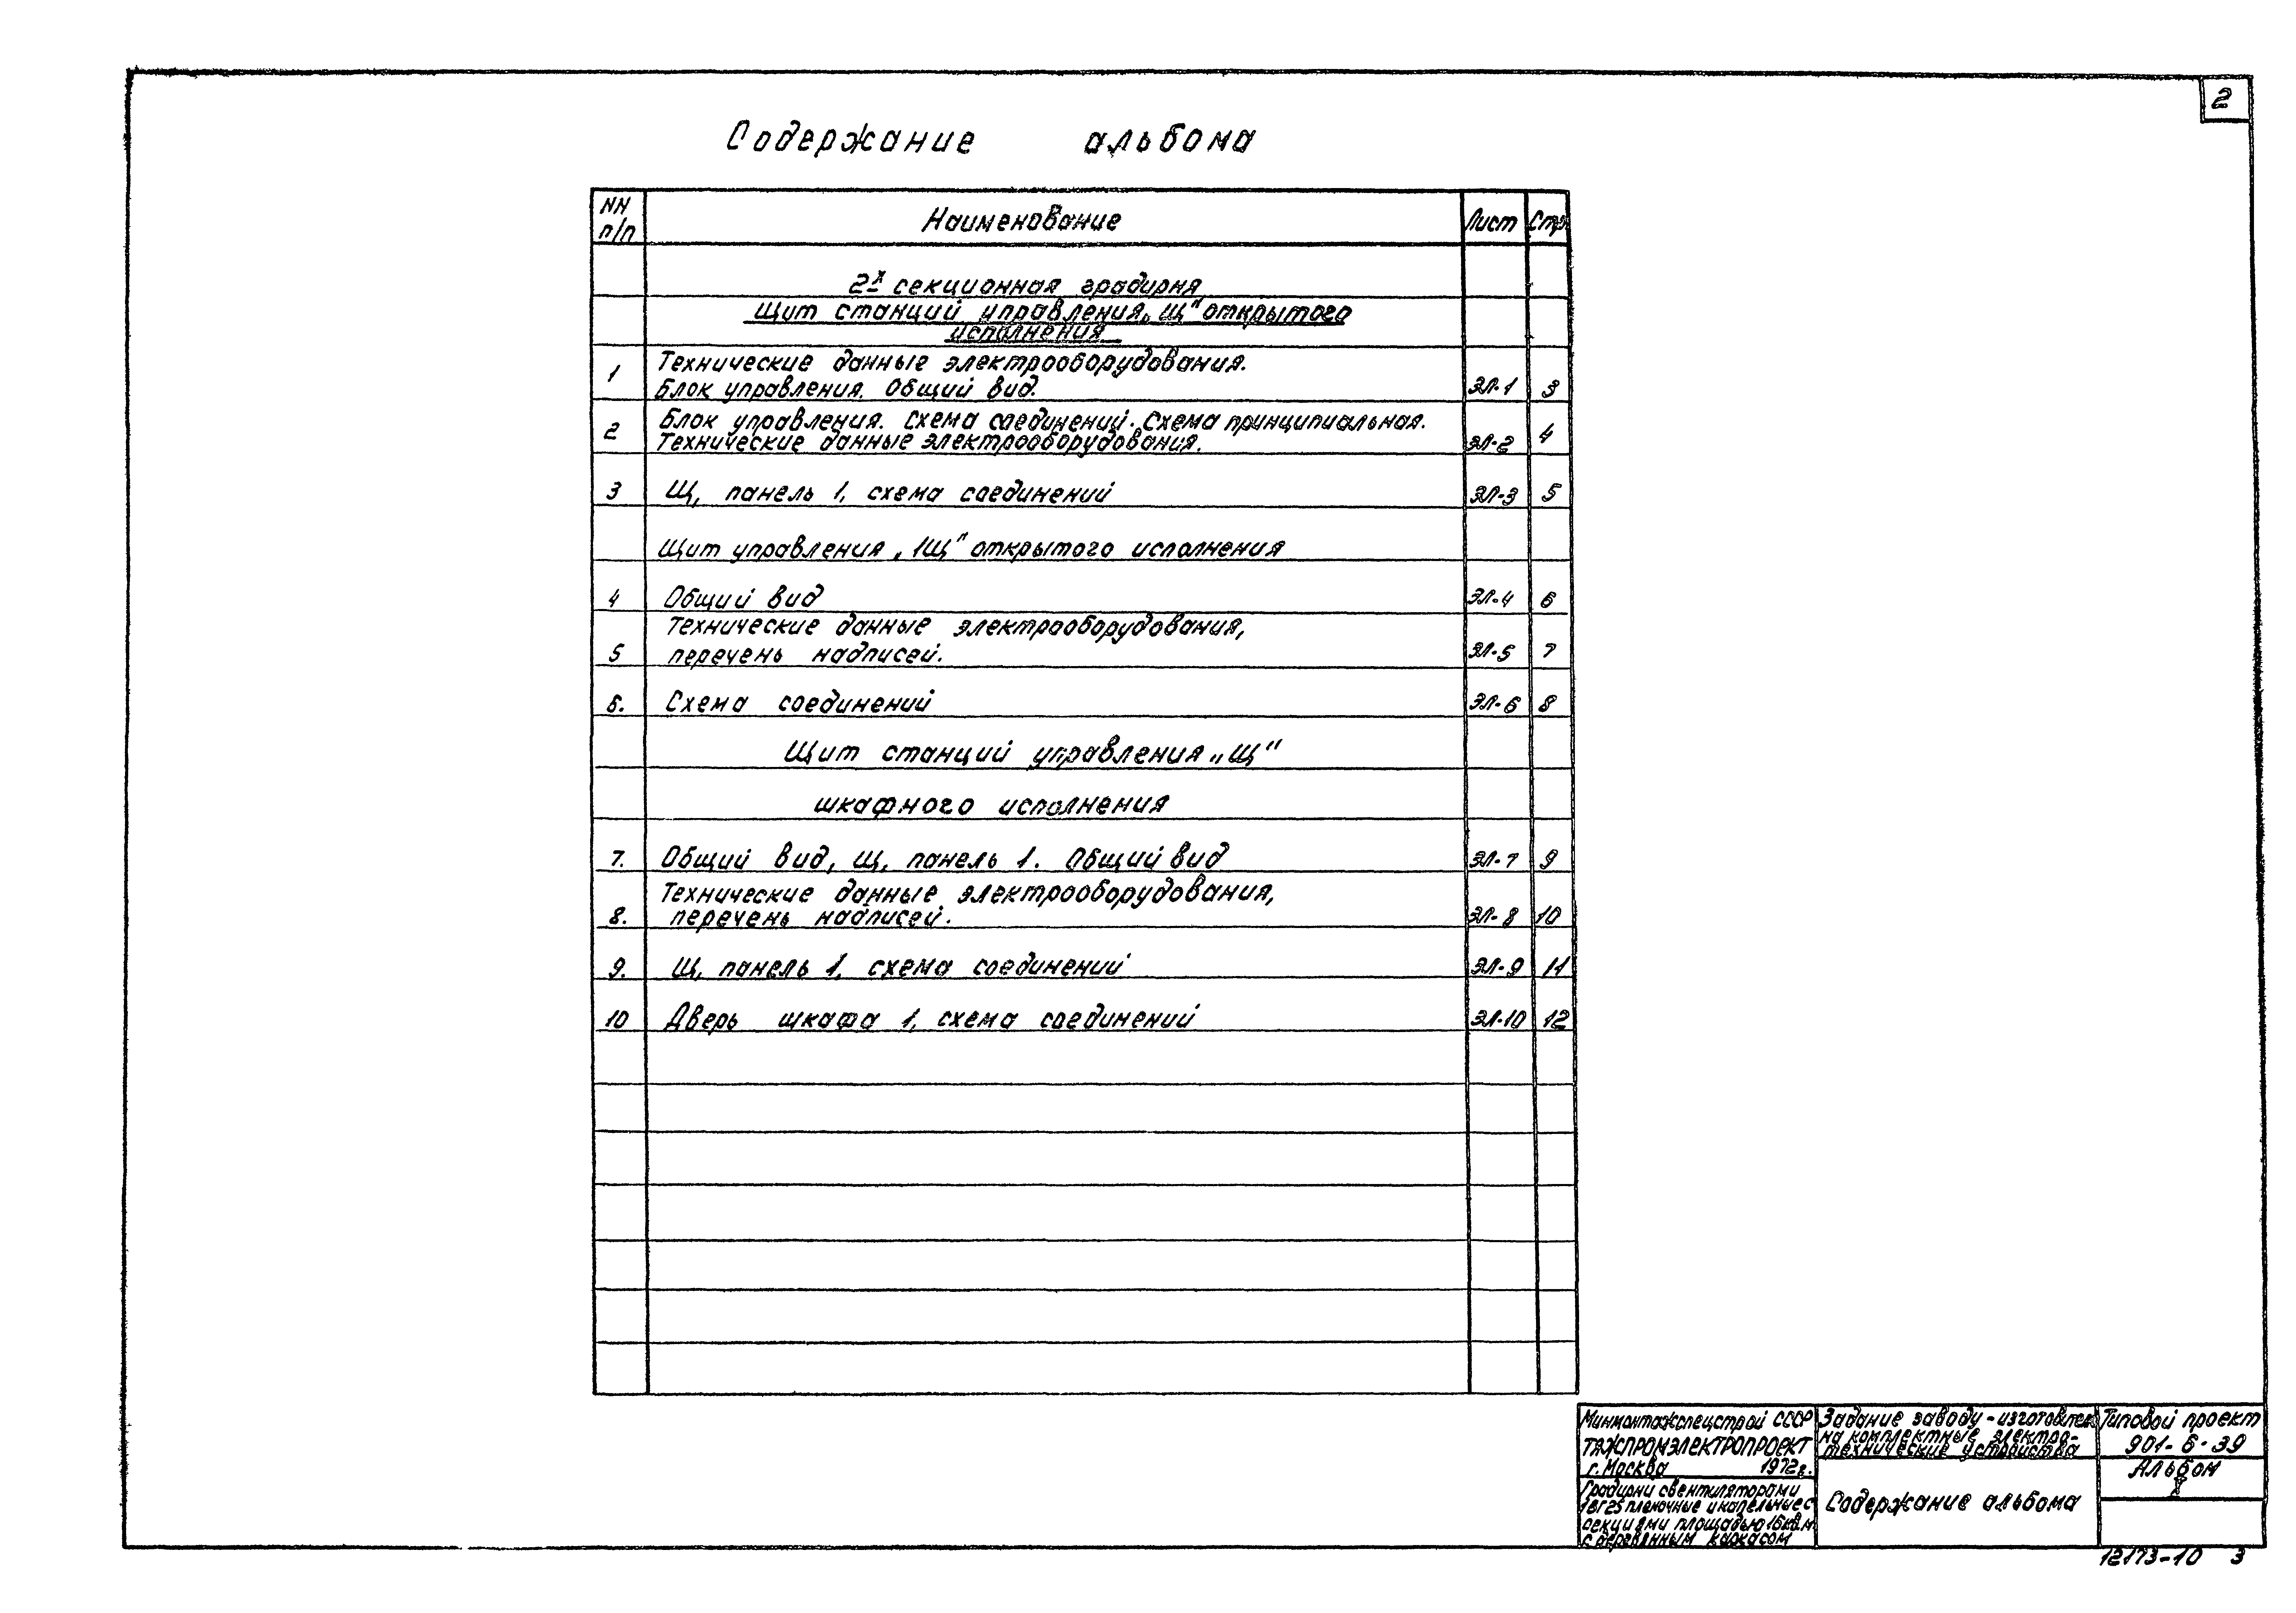 2
Содержание альбома
NN п/п Наименование Лист Стр.
2х секционная градирня
Щит станций управления „Щ" открытого
исполнения
Технические данные электрооборудования.
1 Блок управления. Общий вид. ЭЛ-1 3
Блок управления. Схема соединений. Схема принципиальная.
2 Технические данные электрооборудования. ЭЛ-2 4
3 Щ, панель 1, схема соединений ЭЛ-3 5
Щит управления „1Щ" открытого исполнения
4 Общий вид ЭЛ-4 6
Технические данные электрооборудования,
5 перечень надписей. ЭЛ-5 7
6. Схема соединений ЭЛ-6 8
Щит станций управления „Щ"
шкафного исполнения
7. Общий вид, Щ, панель 1. Общий вид ЭЛ-7 9
Технические данные электрооборудования,
8. перечень надписей. ЭЛ-8 10
9. Щ, панель 1, схема соединений ЭЛ-9 11
10 Дверь шкафа 1, схема соединений ЭЛ-10 12
Минмонтажспецстрой СССР
ТЯЖПРОМЭЛЕКТРОПРОЕКТ
г. Москва 1972г.
Градирни с вентиляторами
1ВГ25 пленочные и капельные с
секциями площадью 16 кв.м
с деревянным каркасом
Задание заводу-изготовителю
на комплектные электро-
технические устройства
Содержание альбома
Типовой проект
901-6-39
Альбом
X
12173-10 3